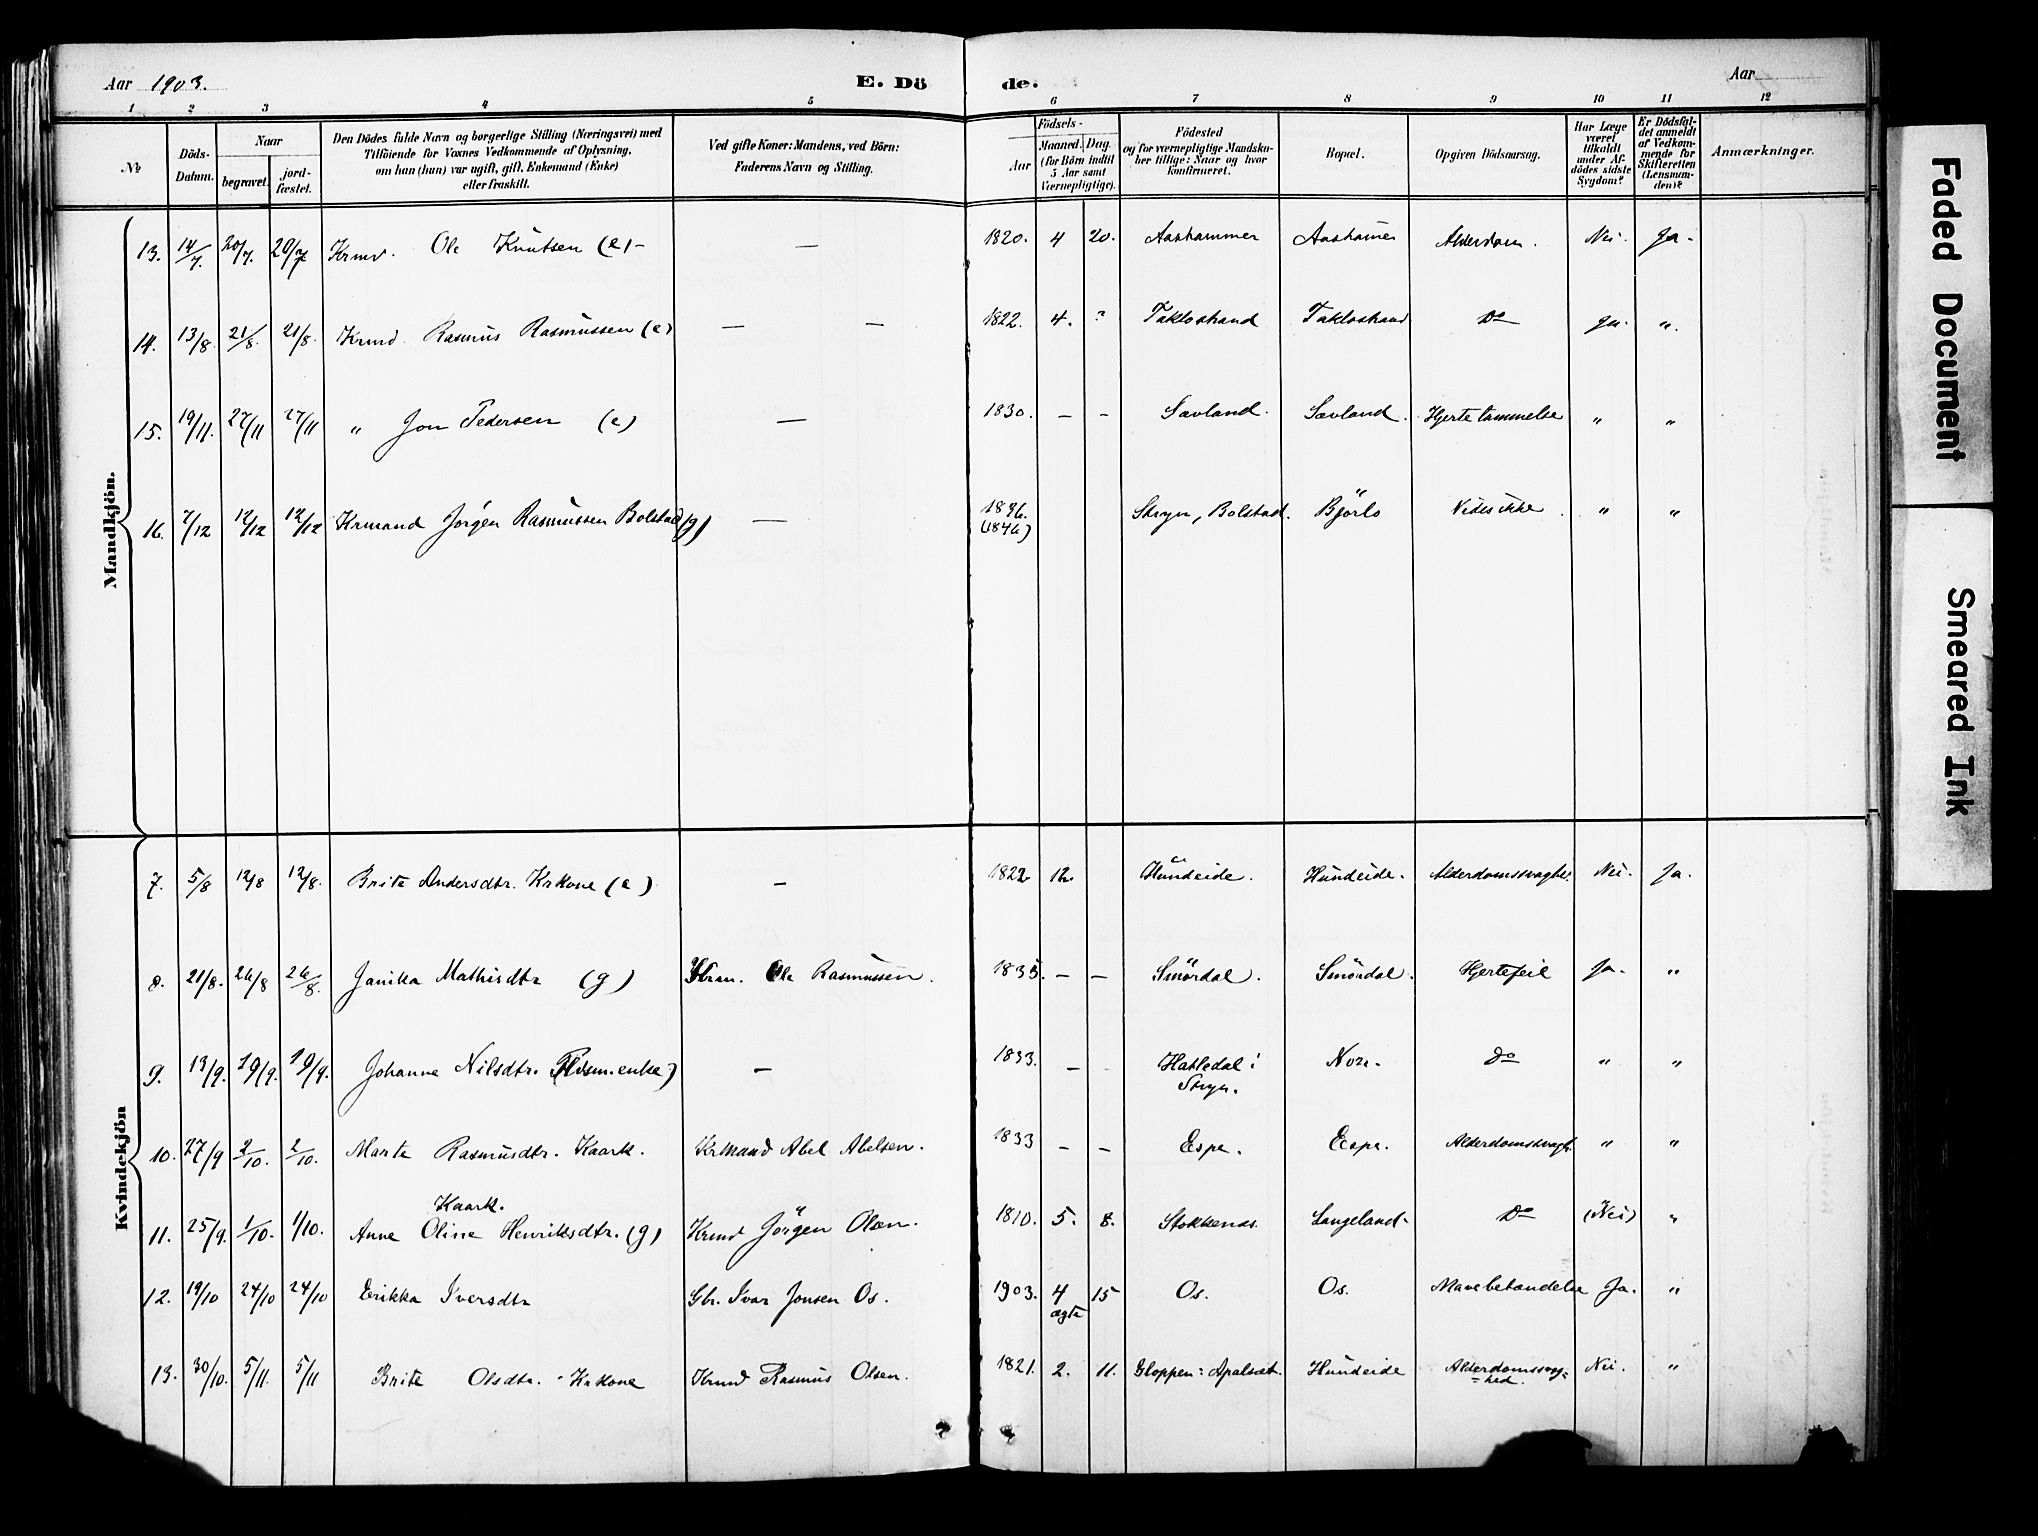 Aar 1903. E. Dö de. Aar
1 2 3 4 5 6 7 8 9 10 11 12
No Döds-Datum. Naar begravet. jord-fæstet. Den Dödes fulde Navn og borgerlige Stilling (Næringsvei) med Tilföiende for Voxnes Vedkommende af Oplysning, om han (hun) var ugift, gift, Enkemand (Enke) eller fraskilt. Ved gifte Koner: Mandens, ved Börn: Faderens Navn og Stilling. Födsels- Aar Maaned. Dag. (for Börn indtil 5 Aar samt Værnepligtige). Födested og for værnepligtige Mandska-ber tillige: Naar og hvor konfirmeret. Bopæl. Opgiven Dödsaarsag. Har Læge været tilkaldt under Af-dödes sidste Sygdom? Er Dödsfal-det anmeldt af Vedkom-mende for Skifteretten (Lensman-den)? Anmærkninger.
Mandkjön.
13. 14/7. 20/7. 20/7 Krmd. Ole Knutsen (e) — — 1820. 4 20. Aashammer Aashamer Alderdom. Nei. Ja.
14. 13/8. 21/8. 21/8. Krmd. Rasmus Rasmussen (e) — — 1822. 4. ? Taklostrand Taklostrand Do Ja. ".
15. 19/11. 27/11 27/11 " Jon Pedersen (e) — 1830. — - Sævland. Sævland. Hjertelammelse " "
16. 7/12 12/12 12/12 Krmand Jörgen Rasmussen Bolstad (g) — 1836. (1846) Stryn, Bolstad. Björlo Vides ikke " "
Kvindekjön
7. 5/8 12/8 12/8. Brite Andersdtr. Krkone (e) — 1822 12. Hundeide. Hundeide. Alderdomssvaghe. Nei. Ja.
8. 21/8. 26/8 26/8. Janika Mathisdtr (g) Ole Rasmussen. 1835. — — Smördal. Smördal. Hjertefeil Ja. "
9. 13/9. 19/9. 19/9. Johanne Nilsdtr. — 1833. — - Hatledal i Stryn. Nore. Do " "
10. 27/9 2/10. 2/10. Marte Rasmusdtr. Kaark. Krmand Abel Abelsen. 1833 — — Espe. Eespe. Alderdomssvagh. " "
Kaark.
11. 25/9. 1/10. 1/10. Anne Oline Henriksdtr. (g) Krmd Jörgen Olsen. 1810. 5. 8. Stokkenes. Langeland. Do (Nei) "
12. 19/10 24/10 24/10 Erikka Iversdtr Gbr. Ivar Jonsen Os. 1903. 4 ægte 15 Os. Os. Mavebetændelse Ja. "
13. 30/10. 5/11. 5/11 Brite Olsdtr. Krkone Krmd Rasmus Olsen. 1821. 2. 11. Gloppen: Apalsæt. Hundeide Alderdomssvag=hed. Nei. "
Faded Document
Smeared Ink